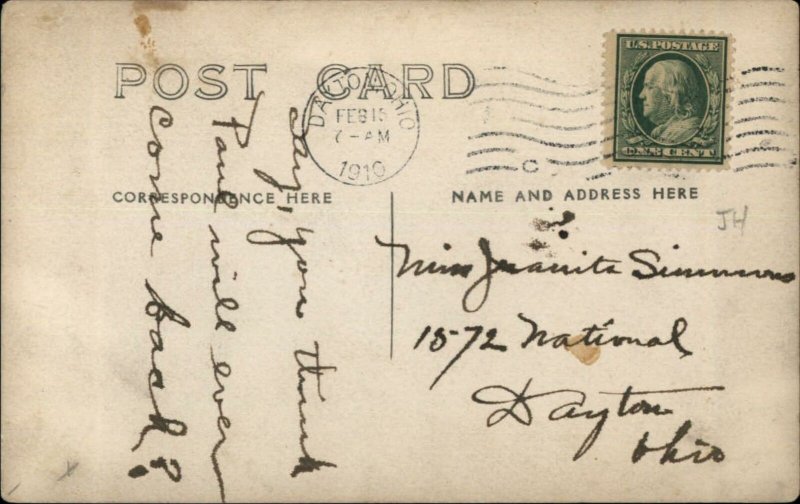 POST CARD
DAYTON, OHIO
FEB 15
7-AM
1910
U.S. POSTAGE
ONE CENT
C
CORRESPONDENCE HERE
NAME AND ADDRESS HERE
JH
Say, you think
Paul will ever
come back?
Miss Juanita Simmons
1572 National
Dayton
Ohio